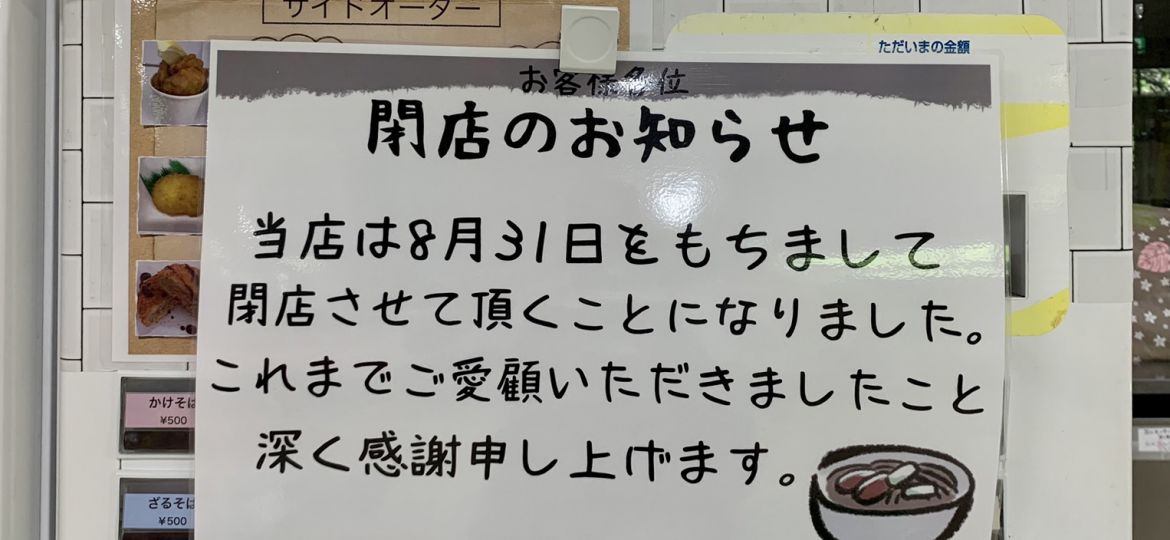 サイドオーダー
ただいまの金額
お客様各位
閉店のお知らせ
当店は8月31日をもちまして
閉店させて頂くことになりました。
これまでご愛顧いただきましたこと
深く感謝申し上げます。
かけそば
¥500
ざるそば
¥500